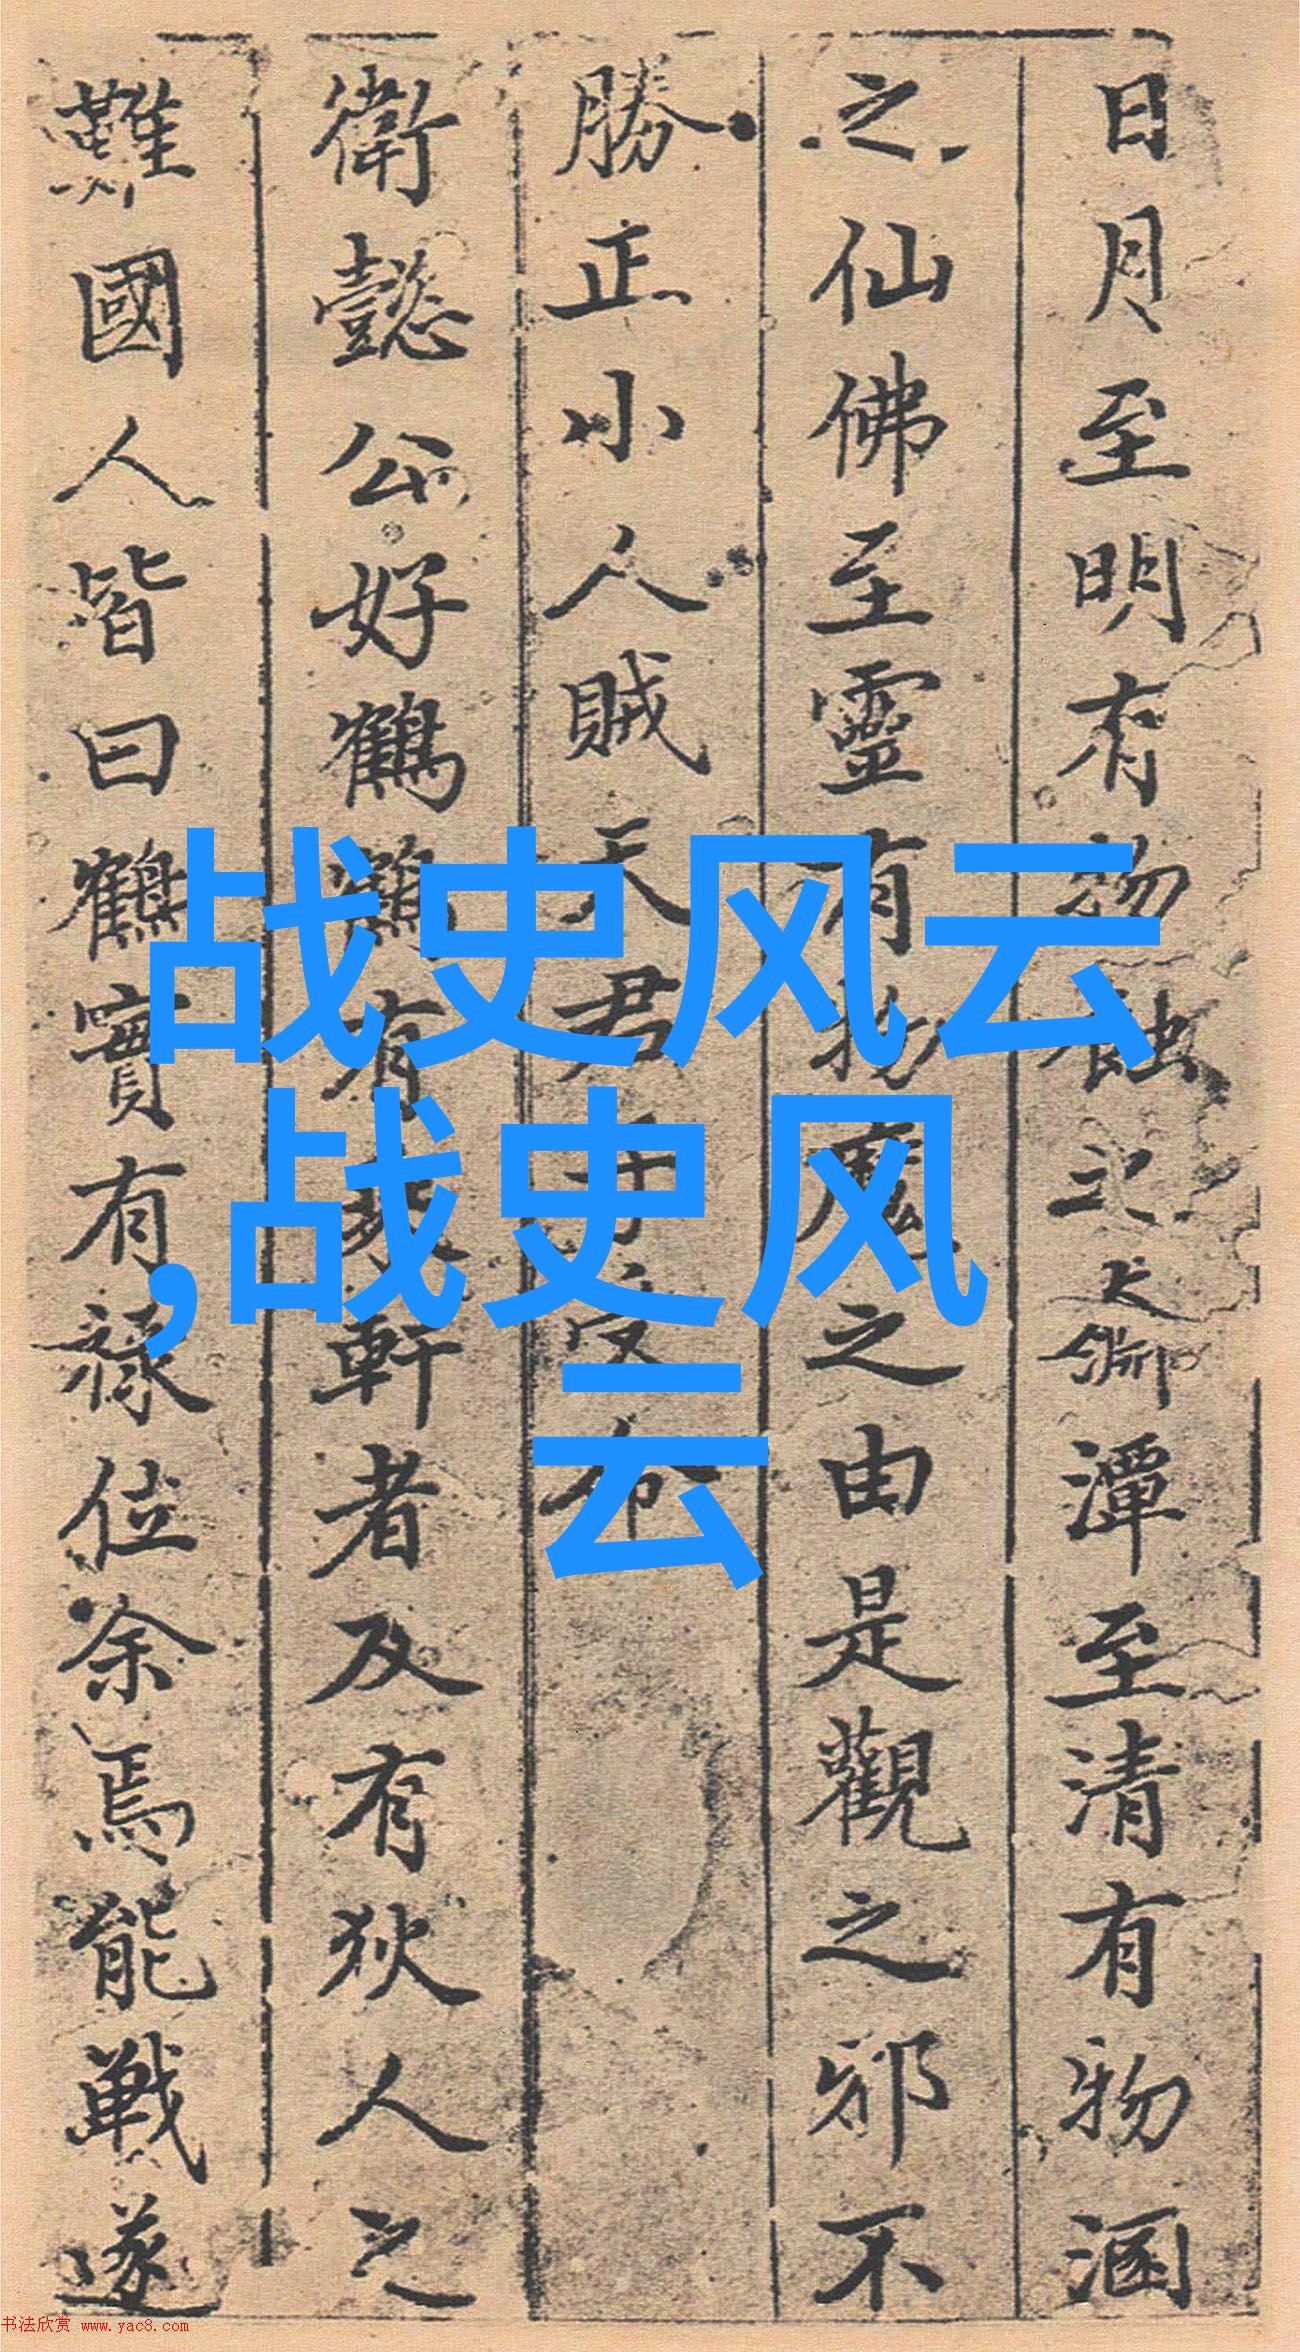 日月至明有物蝕之大淵潭至清有物涵
之仙佛至靈有物魔之由是觀之邪不
勝正小人賊天君
衛懿公好鶴鶴有乘軒者及有狄人之
難國人皆曰鶴實有祿位余焉能戰遂
战史风云
,战史风
云
书法欣赏 www.yac8.com